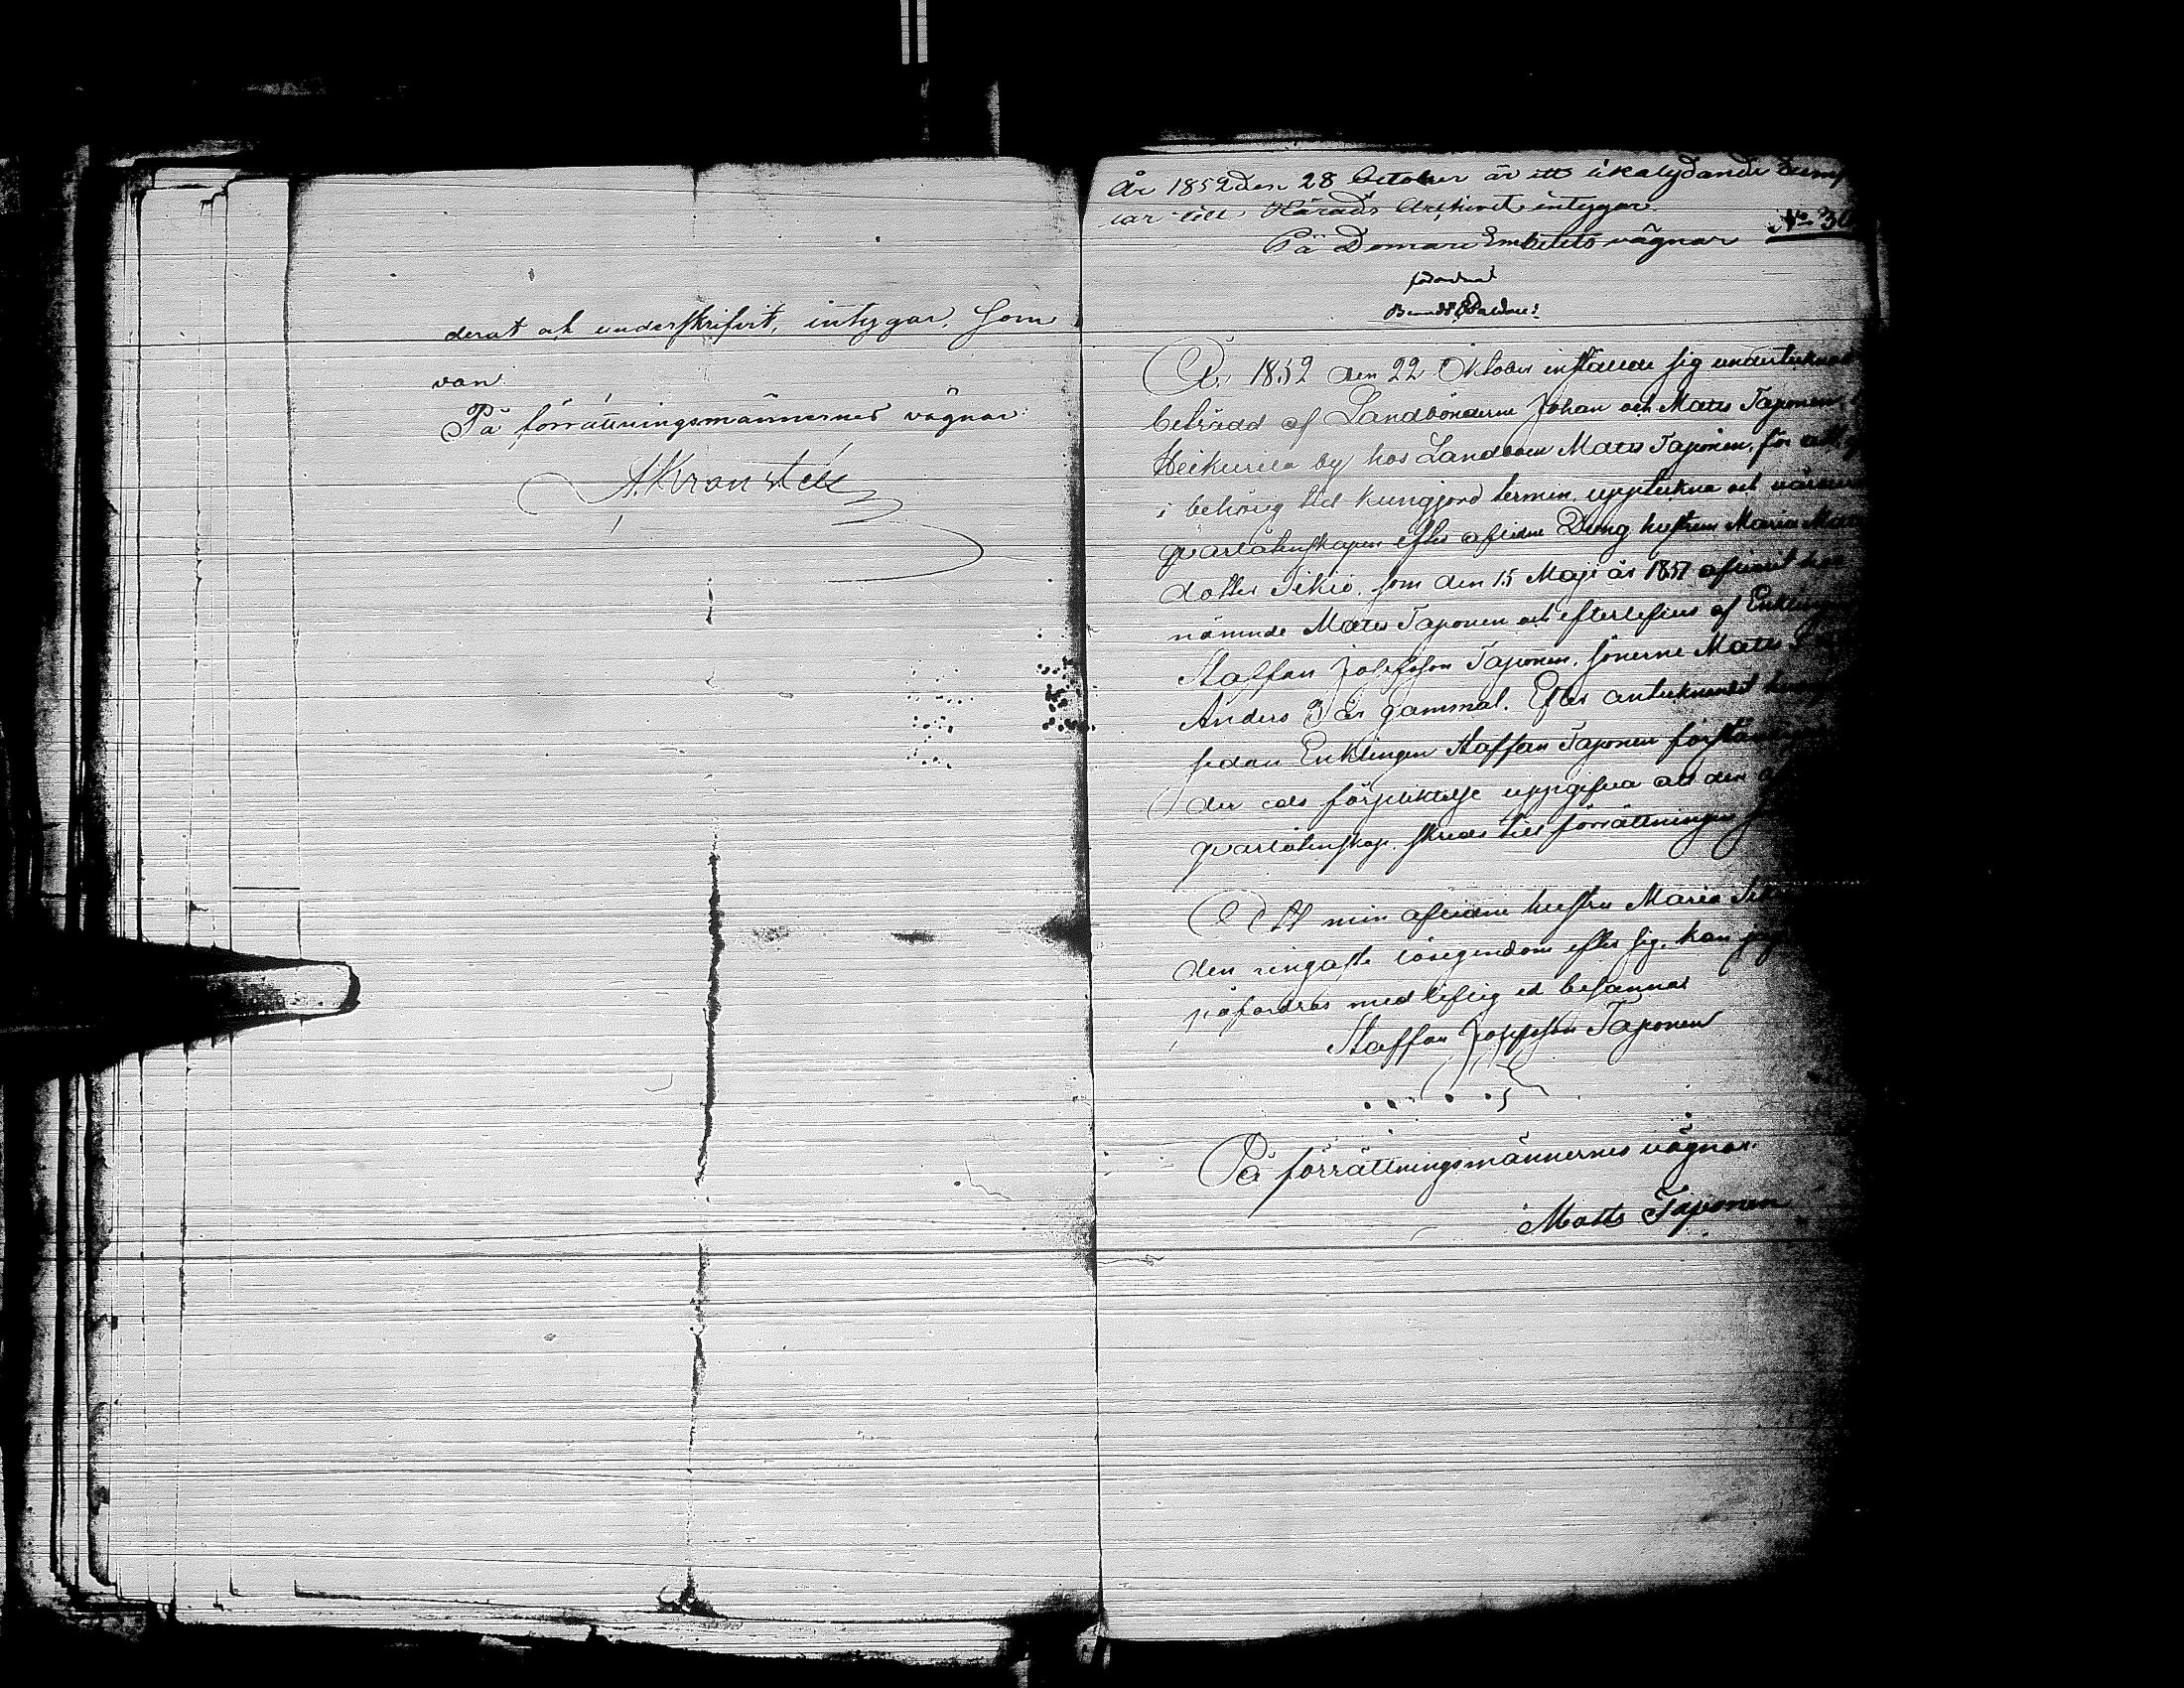 derat och underskrifvit, intygar, Som
van
På förrättningsmännernes vägnar:
A. Kranstéll
År 1852 den 28 October är ett likalydande
lar till Härads Archivet intygar
På Domare Embetets vägnar No 30
År 1852 den 22 Oktober inställde sig undertecknad
beträdd af Landbönderne Johan och Matts Taponen
Heikurila by hos Landboen Matts Taponen, för att
i behörig tid kungjord termin, uppteckna och värdera
qvarlåtenskapen efter aflidne Dreng hustrun Maria Mats
dotter Sikiö, som den 15 Maji år 1851 aflidit hos
nämnde Matts Taponen och efterlefves af Enklingen
Staffan Josefsson Taponen, sönerne Matts
Anders 3 år gammal. Efter antecknandet
sedan Enklingen Staffan Taponen
der eds förpliktelse uppgifva all den
qvarlåtenskap, skreds till förrättningen
Att min aflidne hustru Maria
den ringaste lösegendom efter sig, kan jag
påfordras med liflig ed besannas
Staffan Josefsson Taponen
På förrättningsmännernes vägnar.
Matts Taponen